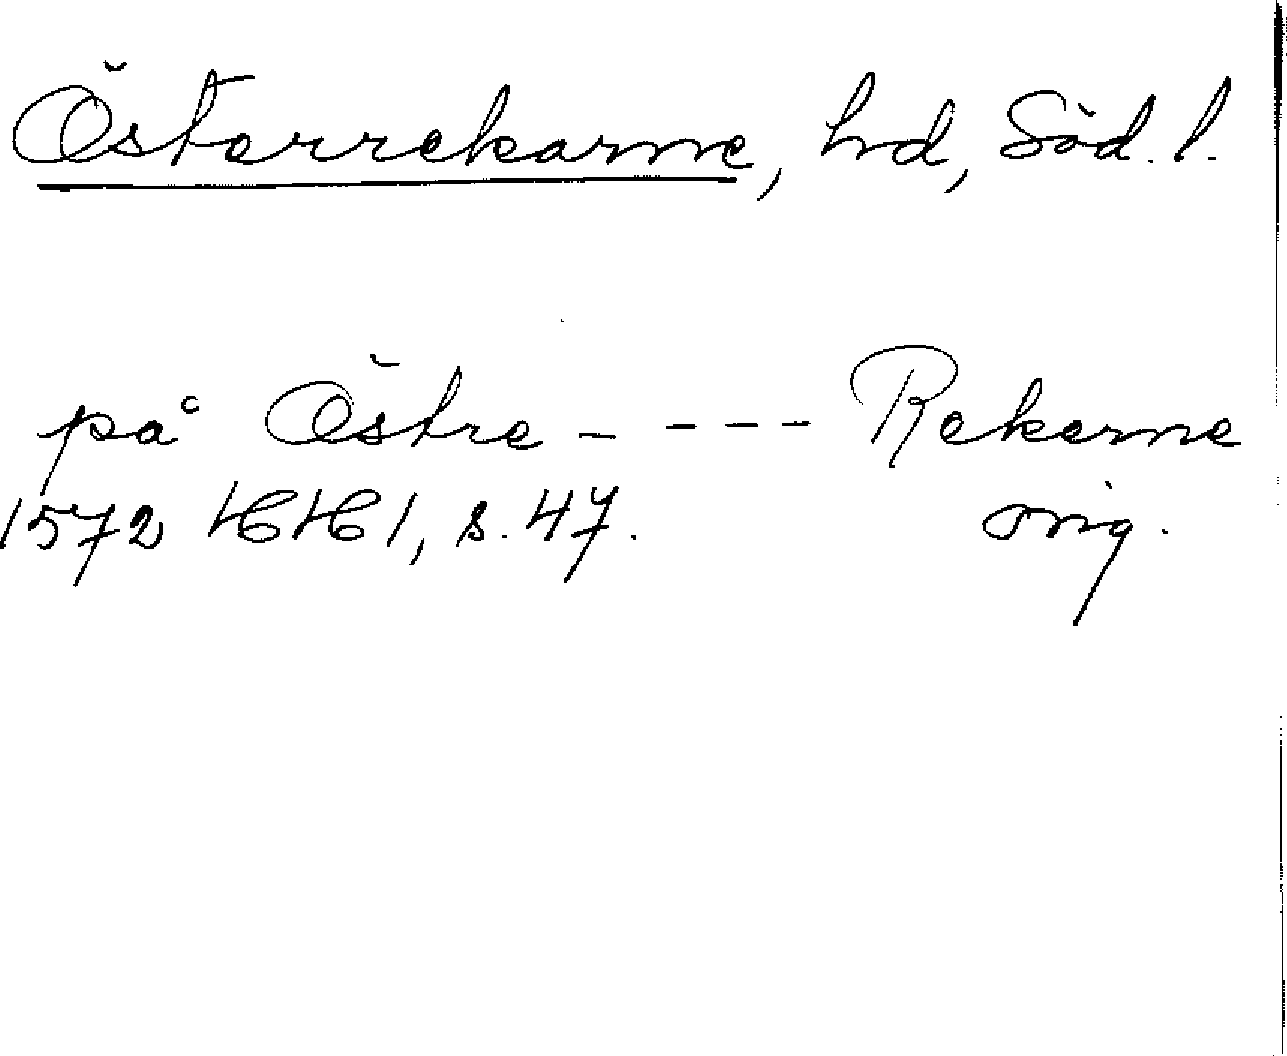 Österrekarne, hd, Söd. l.
på Östre - - - - Rekerne
1572 HH 1, s. 47. orig.